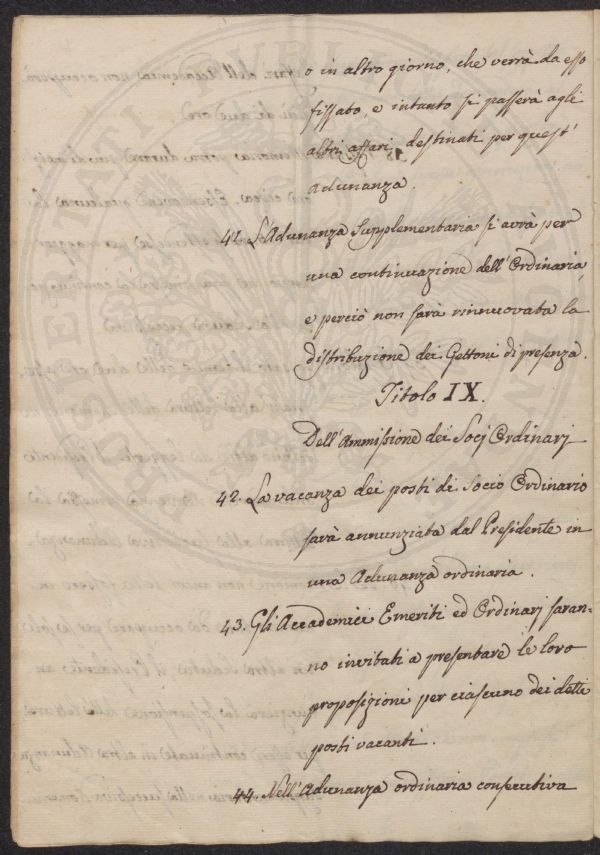 o in altro giorno, che verrà da esso
fissato, e intanto si passerà agli
altri affari destinati per quest'
adunanza.
41. L'Adunanza Supplementaria si avrà per
una continuazione dell'Ordinaria,
e perciò non sarà rinnuovata la
distribuzione dei Gettoni di presenza.
Titolo IX.
Dell'Ammissione dei Socj Ordinarj
42. La vacanza dei posti di Socio Ordinario
sarà annunziata dal Presidente in
una Adunanza ordinaria.
43. Gli Accademici Emeriti ed Ordinarj saran-
no invitati a presentare le loro
proposizioni per ciascuno dei detti
posti vacanti.
44. Nell'Adunanza ordinaria consecutiva